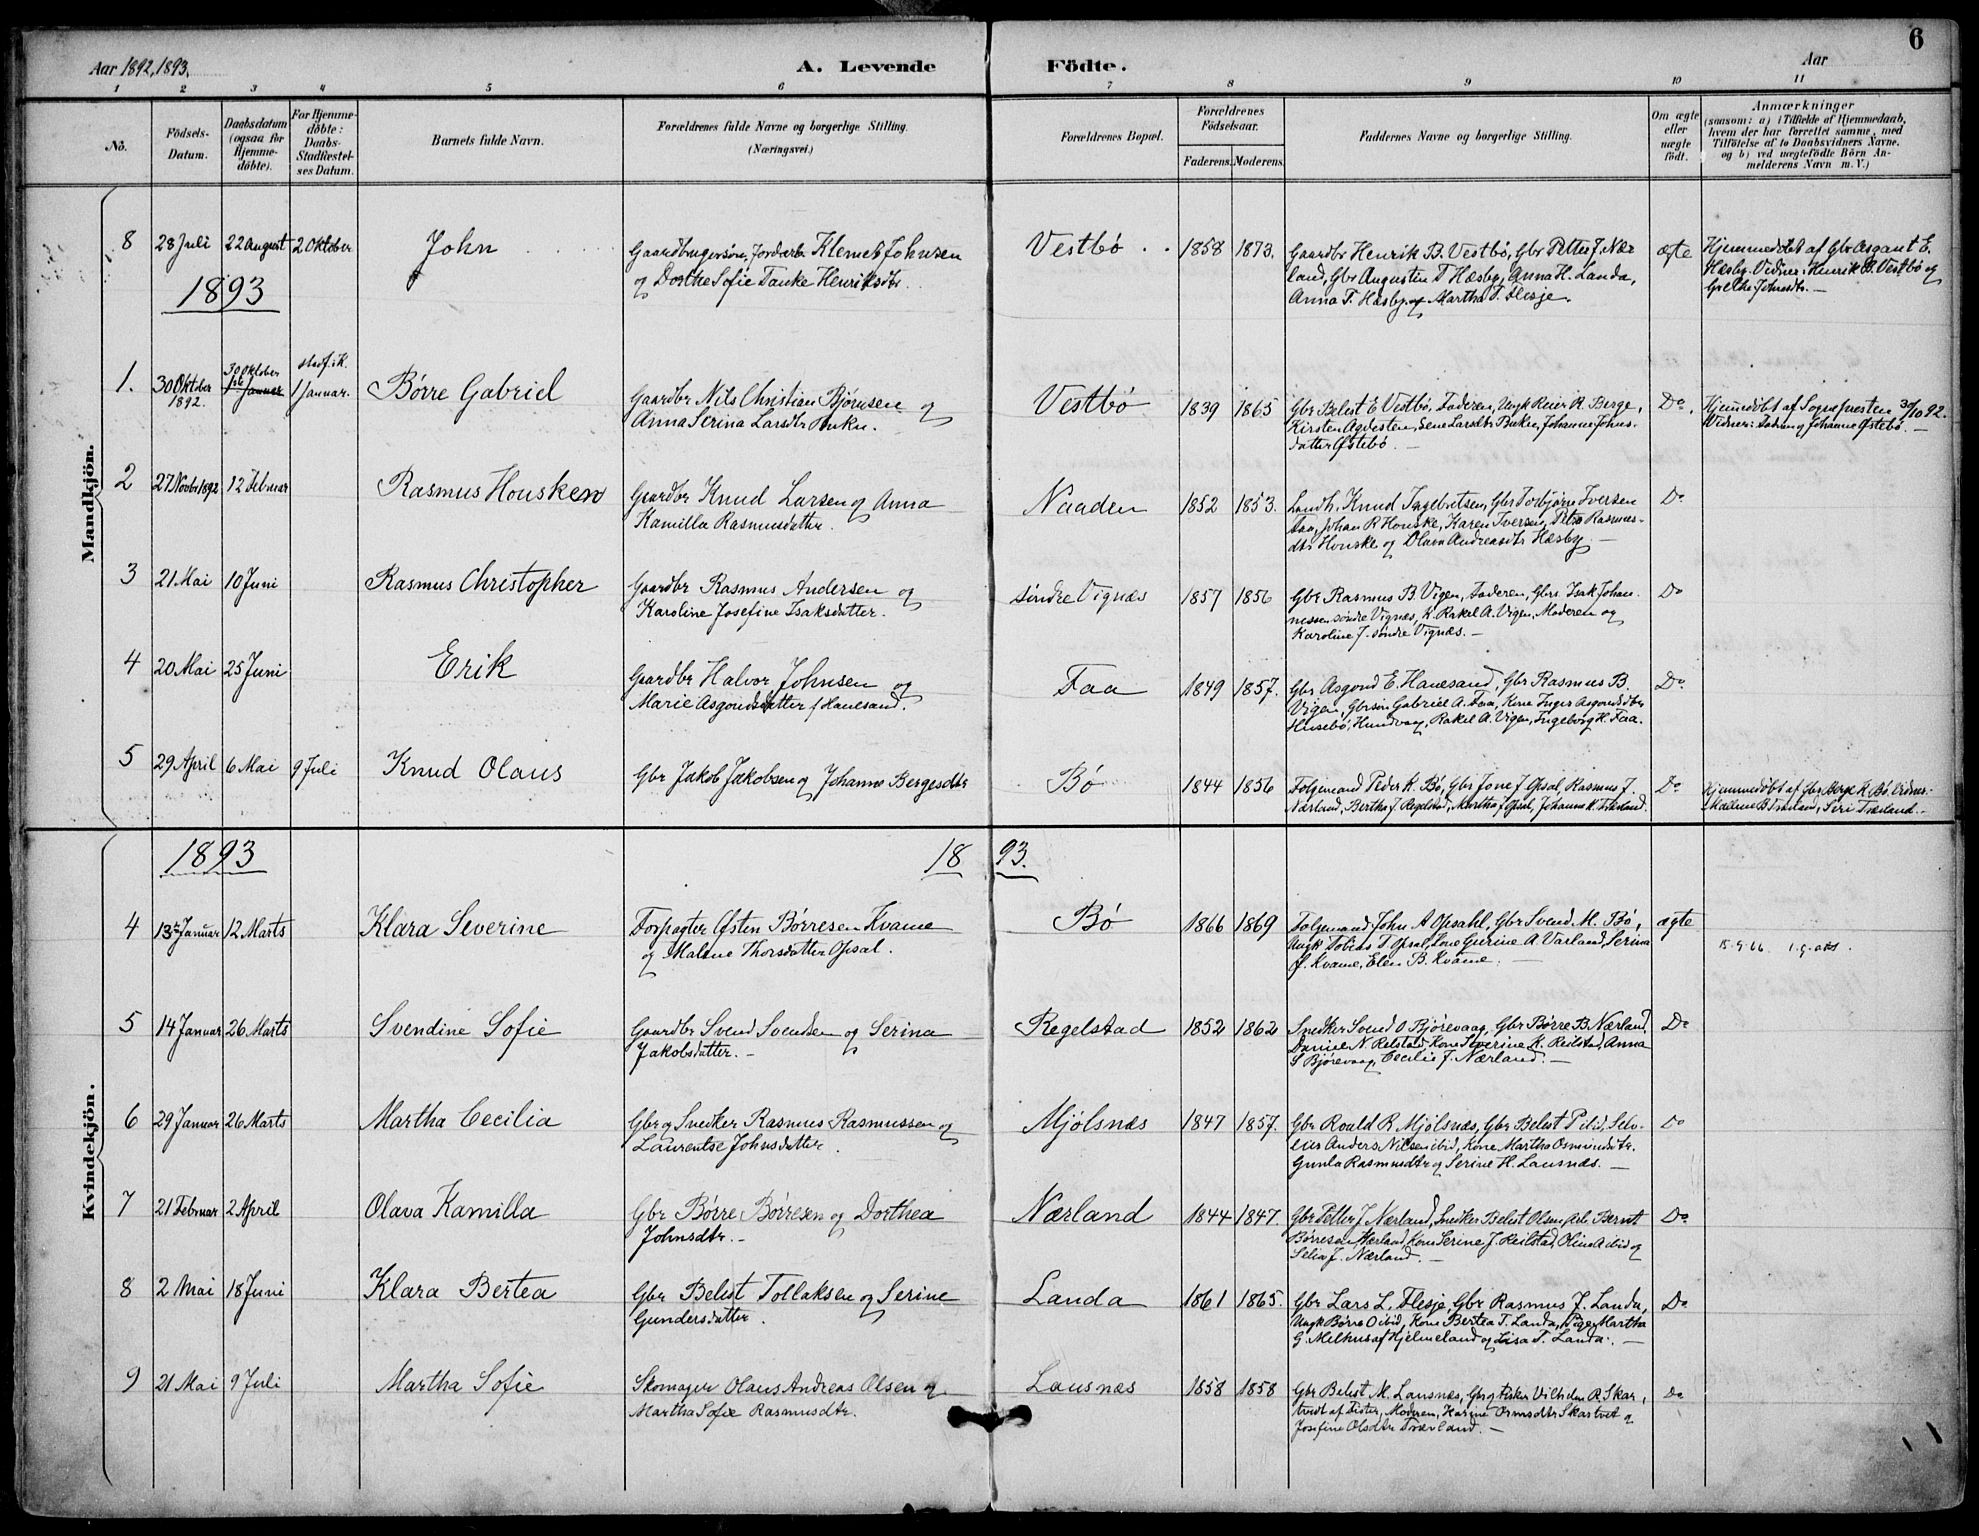 6
Aar 1892, 1893.
A. Levende Födte.
Aar
1 2 3 4 5 6 7 8 9 10 11
No.
Födsels-Datum.
Daabsdatum (ogsaa for Hjemme-döbte).
For Hjemme-döbte: Daabs-Stadfæstel-ses Datum.
Barnets fulde Navn.
Forældrenes fulde Navne og borgerlige Stilling.
(Næringsvei.)
Forældrenes Bopæl.
Forældrenes Födselsaar.
Faderens. Moderens.
Faddernes Navne og borgerlige Stilling.
Om ægte eller uægte födt.
Anmærkninger
(saasom: a) i Tilfælde af Hjemmedaab,
hvem der har forrettet samme, med
Tilföielse af to Daabsvidners Navne.
og b) ved uægtefödte Börn An-
melderens Navn m. V.)
Mandkjön.
8 28 Juli 22 August 2 Oktober John
Gaardbrugersøn, Jordarb. Klemet Johnsen
og Dorthe Sofie Tanke Henriksdtr.
Vestbø 1858 1873.
Gaardbr Henrik B. Vestbø, Gbr Petter J. Nær-
land, Gbr Augustin T Hæsby, Anna H. Landa,
Anna T. Hæsby og Martha T. Flesje.
ægte
Hjemmedøbt af Gbr Asgaut E.
Hæsby. Vidner: Henrik B. Vestbø og
Grethe Johnsdtr.
1893
1. 30 Oktober 1892. 30 Oktober
stadf. i K.
1 Januar. Børre Gabriel
Gaardbr Nils Christian Bjørnsen og
Anna Serina Larsdtr Buku.
Vestbø 1839 1865
Gbr Belest E Vestbø, Faderen, Ungk Reier R. Berge,
Kirsten Agvesten, Lene Larsdtr Buku, Johanne Johns-
datter Østebø
Do.
Hjemmedøbt af Sognepresten 30/10 92.
Vidner: Faderen og Johanne Østebø.
2 27 Novbr 1892 12 Februar Rasmus Housken
Gaardbr Knud Larsen og Anna
Kamilla Rasmusdatter.
Naaden 1852 1853.
Landh. Knud Ingebretsen, Gbr Torbjørn Iversen
Faa, Johan R Houske, Karen Iversen, Petra Rasmus-
dtr Houske og Olava Andreasdtr Hæsby.
Do
3 21 Mai 10 Juni Rasmus Christopher
Gaardbr Rasmus Andersen og
Karoline Josefine Isaksdatter.
søndre Vignæs 1857 1856
Gbr Rasmus B Vigen, Faderen, Gbrs. Isak Johan-
nessen søndre Vignæs, K. Rakel A. Vigen, Moderen og
Karoline J. søndre Vignæs.
Do
4 20 Mai 25 Juni Erik
Gaardbr Halvor Johnsen og
Marie Asgondsdatter f Hanesand.
Faa 1849 1857.
Gbr Asgond E. Hanesand, Gbr Rasmus B.
Vigen, Gbrsøn Gabriel A. Faa, Kone Inger Asgondsdtr
Husebø, Hundvaag, Rakel A. Vigen, Ingeborg H. Faa.
Do
5 29 April 6 Mai 9 Juli Knud Olaus
Gbr Jakob Jakobsen og Johanne Bergesdtr
Bø 1844 1856
Folgemand Peder K. Bø, Gbr Jone J Opsal, Rasmus J.
Nærland, Bertha J. Regelstad, Martha J Opsal, Johanne K. Tverland.
Do
Hjemmedøbt af Gbr Berge K Bø. Vidner:
Malene B Tverland, Siri Tverland.
1893 1893.
Kvindekjön.
4 13de Januar 12 Marts Klara Severine
Forpagter Østen Børresen Kvame
og Malene Thorsdatter Opsal.
Bø 1866 1869
Folgemand John A Opsahl, Gbr Svend M. Bø,
Ungk Tobias T. Opsal, Kone Gurine A Varland, Serina
J. Kvame, Elen B. Kvame.
ægte
15.9.66 1.g. att.
5 14 Januar 26 Marts Svendine Sofie
Gaardbr Svend Svendsen og Serina
Jakobsdatter.
Regelstad 1852 1862
Snedker Svend O Bjørevaag, Gbr Børre B. Nærland,
Daniel N. Reilstad, Kone Severine K. Reilstad, Anna
S Bjørevaag, Cecilie J. Nærland.
Do
6 29 Januar 26 Marts Martha Cecilia
Gbr og Snedker Rasmus Rasmussen og
Laurentse Johnsdatter.
Mjølsnæs 1847 1857.
Gbr Roald R Mjølsnæs, Gbr Belest P ibid, Selv-
eier Anders Nilsen ibid, Kone Martha Osmundsdtr.
Gunla Rasmusdtr og Serine H. Lausnæs.
Do
7 21 Februar 2 April Olava Kamilla
Gbr Børre Børresen og Dorthea
Johnsdtr.
Nærland 1844 1847
Gbr Petter J Nærland, Snedker Belest Olsen, Arb. Bernt
Børresen Nærland, Kone Serine J. Reilstad, Oline A ibid og
Selia J. Nærland.
Do
8 2 Mai 18 Juni Klara Bertea
Gbr Belest Tollaksen og Serine
Gundersdatter.
Landa 1861 1865.
Gbr Lars L. Flesje, Gbr Rasmus J. Landa,
Ungk Børre O ibid, Kone Bertea T. Landa, Pige Martha
G. Melhus af Hjelmeland og Lisa T. Landa.
Do
9 21 Mai 9 Juli Martha Sofie
Skomager Olaus Andreas Olsen og
Martha Sofie Rasmusdtr.
Lausnæs 1858 1858
Gbr Belest M. Lausnæs, Gbr og Fisker Vilhelm R. Skar-
tvedt af Fister, Moderen, Karine Ormsdtr Skartvet og
Josefine Olsdtr Tverland.
Do